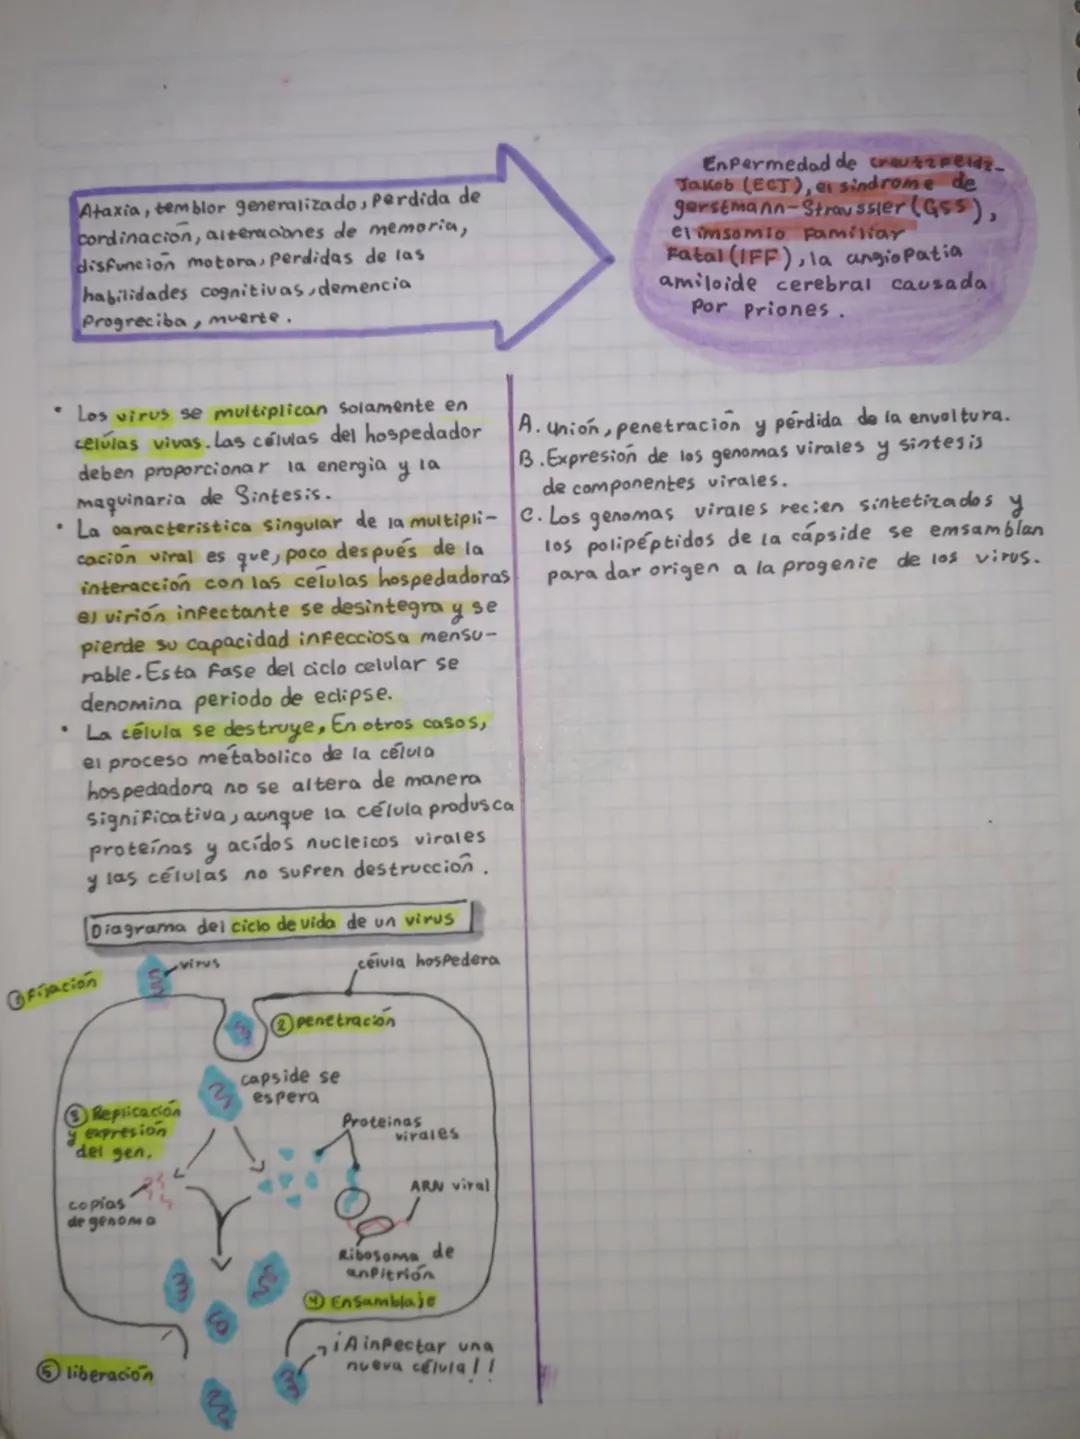 Ataxia, temblor generalizado, perdida de
cordinación, alteraciones de memoria,
disfunción motora, perdidas de las
habilidades cognitivas, demencia
Progreciba, muerte.
Enfermedad de creutzfeldz-
Jakob (ECJ), el sindrome de
gerstmann-Straussler (GSS),
el imsomio familiar
Fatal (IFF), la angiopatia
amiloide cerebral causada
por priones.
• Los virus se multiplican solamente en
celúlas vivas. Las células del hospedador
deben proporcionar la energia y la
maquinaria de Sintesis.
• La caracteristica singular de la multipli-
cación viral es que, poco después de la
interacción con las celúlas hospedadoras
el virión infectante se desintegra y se
pierde su capacidad infecciosa mensu-
rable. Esta fase del ciclo celular se
denomina periodo de eclipse.
• La célula se destruye, En otros casos,
el proceso metabolico de la célula
hospedadora no se altera de manera
significativa, aunque la célula produsca
proteínas y acídos nucleicos virales
y las células no sufren destrucción.
A. Unión, penetración y pérdida de la envoltura.
B. Expresión de los genomas virales y sintesis
de componentes virales.
C. Los genomas virales recien sintetizados y
los polipéptidos de la cápside se emsamblan
para dar origen a la progenie de los virus.
Diagrama del ciclo de vida de un virus
virus
célula hospedera
① Fijación
② penetración
capside se
espera
③ Replicación
y expresión
del gen.
Proteinas
virales
copias
de genoma
ARN viral
Ribosoma de
anfitrión
④ Ensamblaje
¡A infectar una
nueva célula!!
⑤ liberación